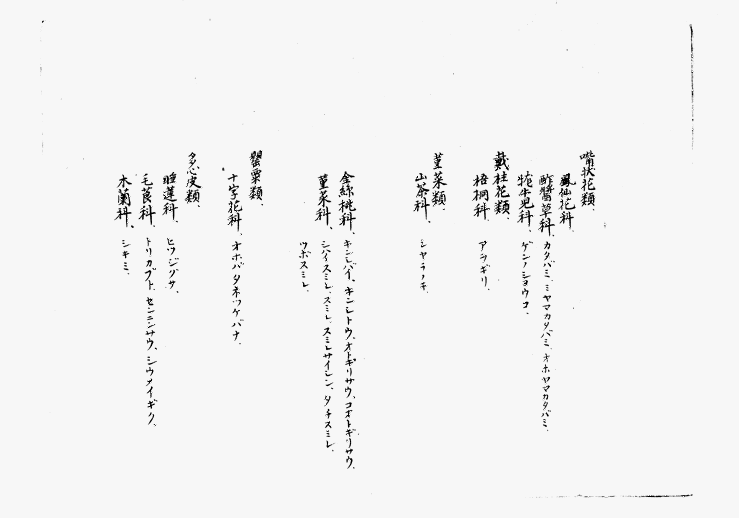 嘴状花類、
鳳仙花科、
酢醬草科、カタバミ、ミヤマカタバミ、オホヤマカタバミ、
牻牛児科、ゲンノショウコ、
戴柱花類、
梧桐科、アヲギリ、
菫菜類、
山茶科、シヤラノキ
金絲桃科、キンシバイ、キンシトウ、オトギリサウ、コオトギリサウ、
菫菜科、シハイスミレ、スミレ、スミレサイシン、タチスミレ、
ツボスミレ
罌粟類、
十字花科、オホバタネツケバナ、
多心皮類、
睡蓮科、ヒツジグサ、
毛莨科、トリカブト、センニンサウ、シウメイギク、
木蘭科、シキミ、